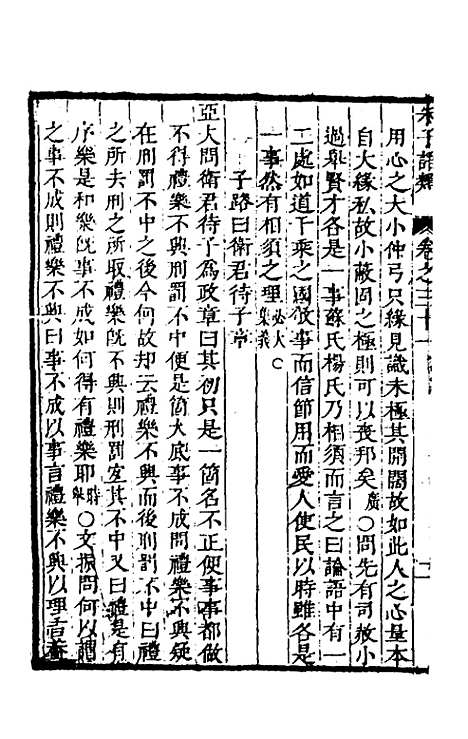 朱子語類　卷之三十
用心之大小仲弓只緣見識未極其開闊故如此人之心量本
自大緣私故小蔽固之極則可以喪邦矣廣○問先有司赦小
過舉賢才各是一事蘇氏楊氏乃相須而言之曰論語中有一
二處如道千乘之國敬事而信節用而愛人使民以時雖各是
一事然有相須之理必大集義○
子路曰衛君待子章
亞夫問衛君待子爲政章曰其初只是一箇名不正便事事都做
不得禮樂不興刑罰不中便是箇大底事不成問禮樂不興疑
在刑罰不中之後今何故却云禮樂不興而後刑罰不中曰禮
之所去刑之所取禮樂既不興則刑罰宜其不中又曰禮是有
序樂是和樂既事不成如何得有禮樂耶時舉○文振問何以謂
之事不成則禮樂不興曰事不成以事言禮樂不興以理言蓋